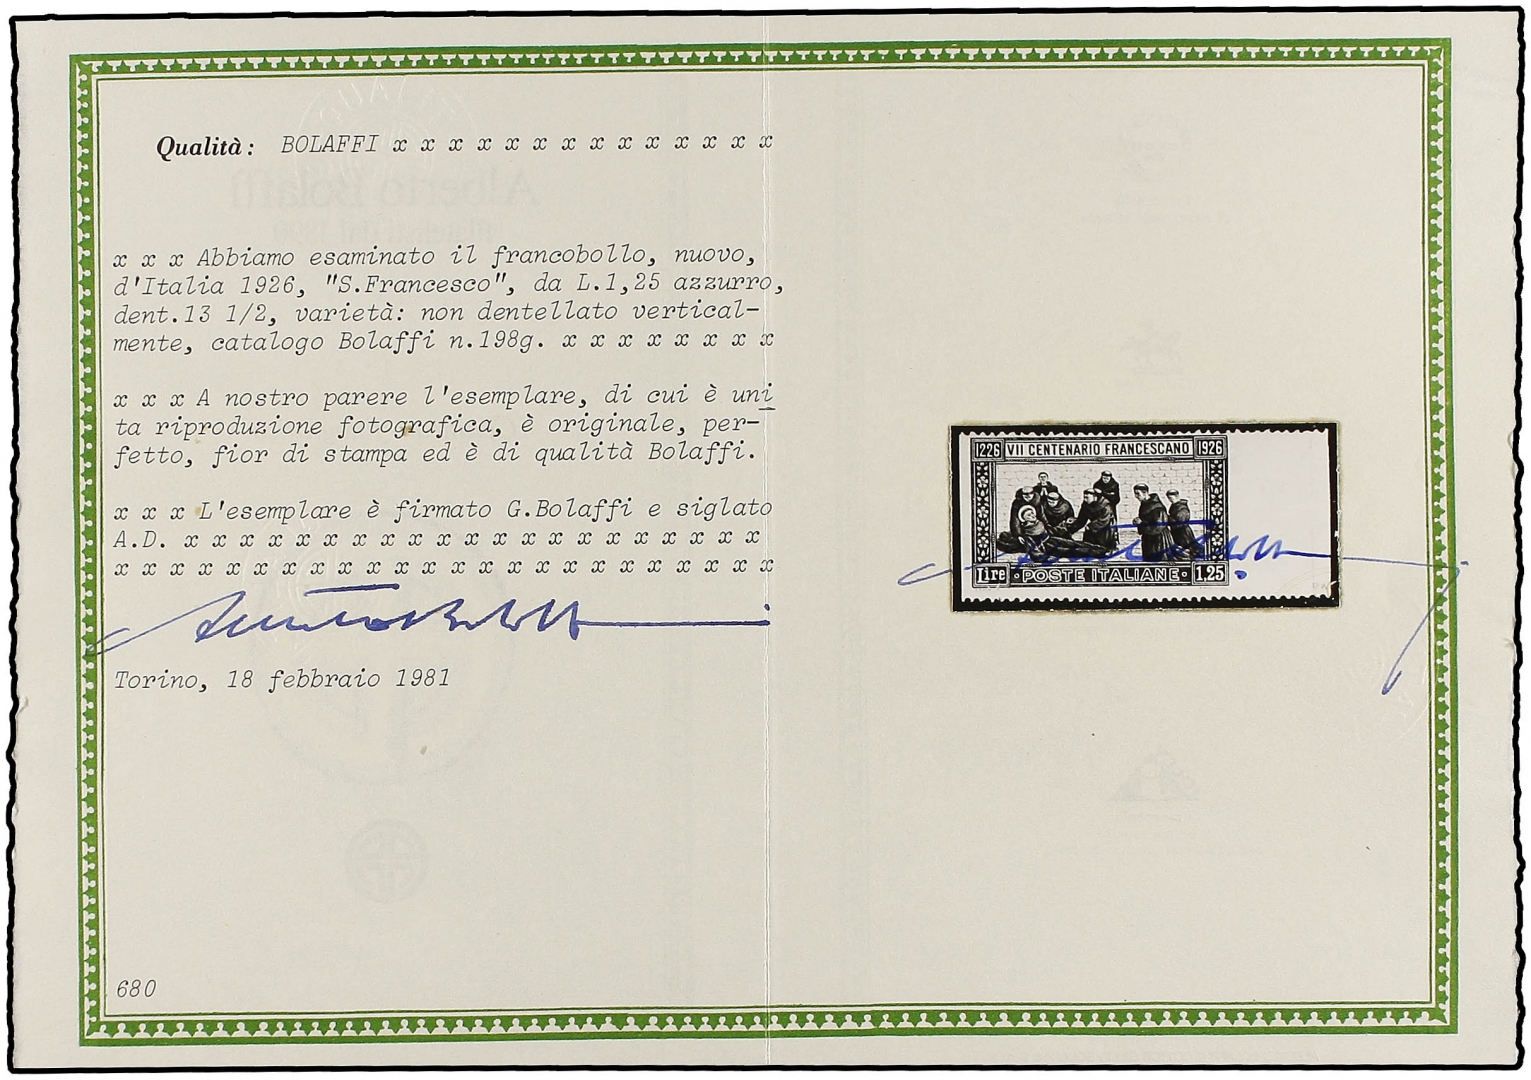 Qualità: BOLAFFI x x x x x x x x x x x x x x
x x x Abbiamo esaminato il francobollo, nuovo,
d'Italia 1926, "S.Francesco", da L.1,25 azzurro,
dent.13 1/2, varietà: non dentellato vertical-
mente, catalogo Bolaffi n.198g. x x x x x x x x
x x x A nostro parere l'esemplare, di cui è uni
ta riproduzione fotografica, è originale, per-
fetto, fior di stampa ed è di qualità Bolaffi.
x x x L'esemplare è firmato G.Bolaffi e siglato
A.D. x x x x x x x x x x x x x x x x x x x x x
x x x x x x x x x x x x x x x x x x x x x x x x
Torino, 18 febbraio 1981
680
1226 VII CENTENARIO FRANCESCANO 1926
Lire · POSTE ITALIANE · 1,25